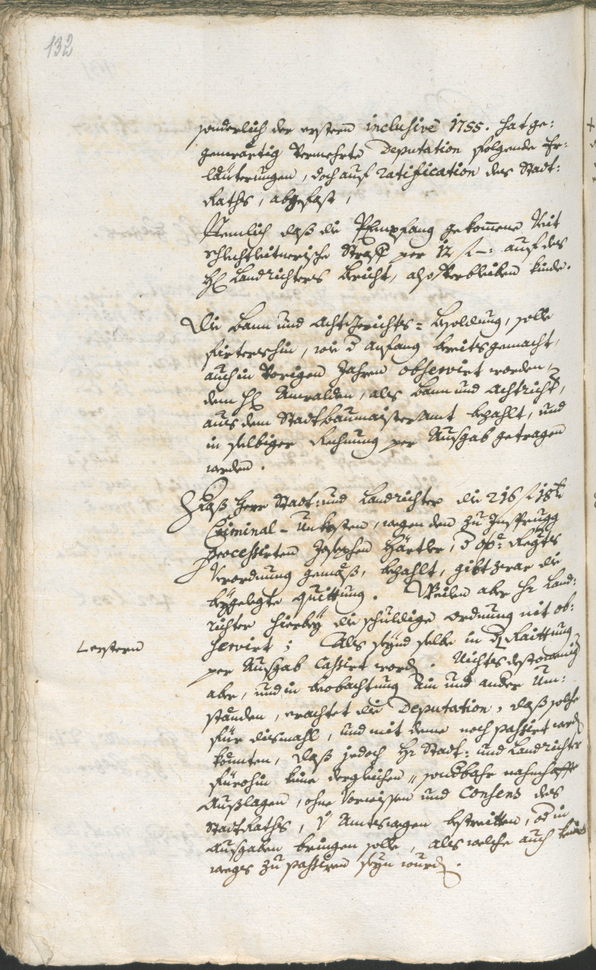 132
sonderlich der ersteren inclusivè 1755. hat ge:
genwärtig vermehrte Deputation folgende Er:
läuterungen, doch auf ratification des Stadt:
Raths, abgefast,
Nemlich daß die Empfang gekomene Veit
Schlechtleitnerische Straff per 12 f –: auf des
H. Landrichters bericht, also verbleiben könde.
Die Bann und Acht Gerichts = besoldung, solle
fürtershin, wie anfang bereits gemacht,
auch in vorigen Jahren observirt worden,
dem H. Anwalden, als Bann und Achtricht.,
aus dem Stadtbaumaister Amt bezahlt, und
in selbiger Rechnung per Ausgab getragen
werden.
Daß Herr Stadt: und Landrichter die 216 f 18 k
Criminal = Unkosten, wegen dem zu Insprugg
processirten Josephen Härtler, Regts
Verordnung gemäß, bezahlt, gibt zwar die
beygelegte quittung. Weilen aber H. Land:
richter hierbey die schuldige ordnung nit ob:
servirt; Als seynd selbe in der Raittung
Lersteren
per Ausgab cassirt word. Nichtsdestoweniger
aber, und in beobachtung ain und ander Um:
ständen, erachtet die Deputation, daß solche
für diesmahl, und mit deme noch passirt werden
könnten, daß jedoch H. Stadt: und Landrichter
fürohin keine dergleichen sonderbahr nahmhaffte
Auslagen, ohne Vorwissen und Consens des
StadtRaths, Amtswegen bestreitten, in
Ausgaben bringen solle, als welche auch keines
weegs zu passiren seyn wurden.